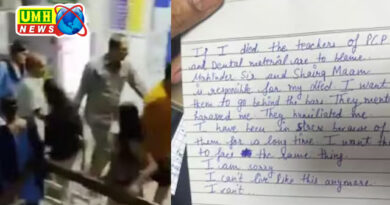 UMH
NEWS
If I died the teachers of PCP
and Dental material are to blame.
Mahinder Sir and Shairg Maam
is responible for my died I want
them to go behind the bars They mental
harassed me They humiliated me
I have been in stress because of
them for a long time I want them
to face the same thing.
I am sorry
I can't live like this anymore
I can't